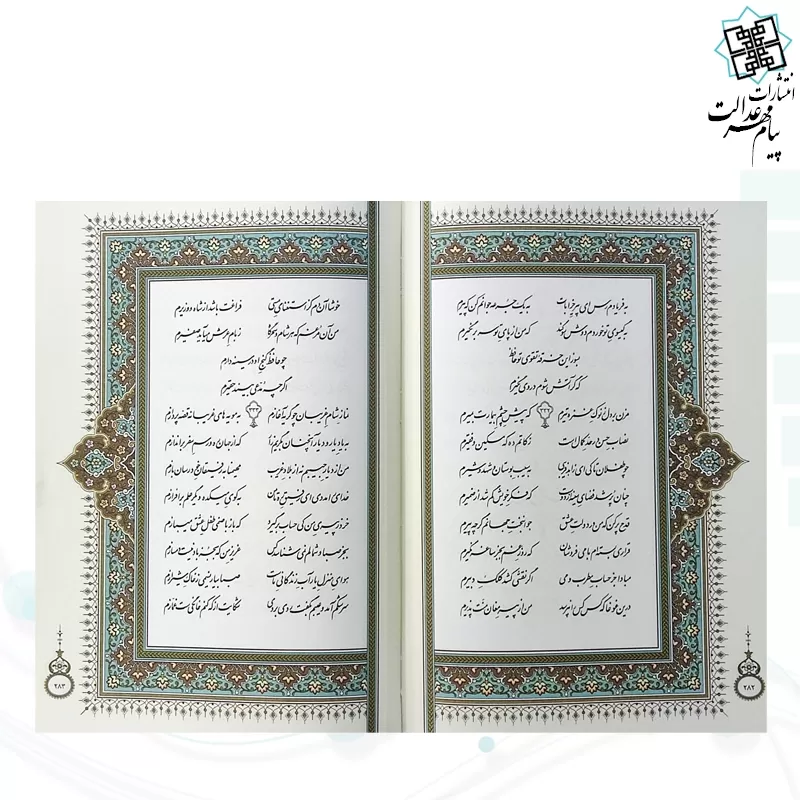 انتشارات
پیام مهر عدالت
به فریادم رس ای پیر خرابات به یک جرعه جوانم کن که پیرم
به گیسوی تو خوردم دوش سوگند که من از پای تو سر بر نگیرم
بسوز این خرقه تقوی تو حافظ
که گر آتش شوم در وی نگیرم
مزن بر دل ز نوک غمزه تیرم که پیش چشم بیمارت بمیرم
نصاب حسن در حد کمال است زکاتم ده که مسکین و فقیرم
چو طفلان تا کی ای زاهد فریبی به سیب بوستان و شهد و شیرم
چنان پر شد فضای سینه از دوست که فکر خویش گم شد از ضمیرم
قدح پر کن که من در دولت عشق جوان بخت جهانم گرچه پیرم
قراری بسته‌ام با می فروشان که روز غم بجز ساغر نگیرم
مبادا جز حساب مطرب و می اگر نقشی کشد کلک دبیرم
درین غوغا که کس کس را نپرسد من از پیر مغان منت پذیرم
۲۸۲
خوشا آن دم کز استغنای مستی فراغت باشد از شاه و وزیرم
من آن مرغم که هر شام و سحرگاه ز بام عرش می‌آید صفیرم
چو حافظ گنج او در سینه دارم
اگرچه مدعی بیند حقیرم
نماز شام غریبان چو گریه آغازم به مویه‌های غریبانه قصه پردازم
به یاد یار و دیار آنچنان بگریم زار که از جهان ره و رسم سفر براندازم
من از دیار حبیبم نه از بلاد غریب مهیمنا به رفیقان خود رسان بازم
خدای را مددی ای رفیق ره تا من به کوی میکده دیگر علم برافرازم
خرد ز پیری من کی حساب برگیرد که باز با صنمی طفل عشق می‌بازم
بجز صبا و شمالم نمی‌شناسد کس عزیز من که بجز باد نیست دمسازم
هوای منزل یار آب زندگانی ماست صبا بیار نسیمی ز خاک شیرازم
سرشکم آمد و عیبم بگفت روی به روی شکایت از که کنم خانگی است غمازم
۲۸۳